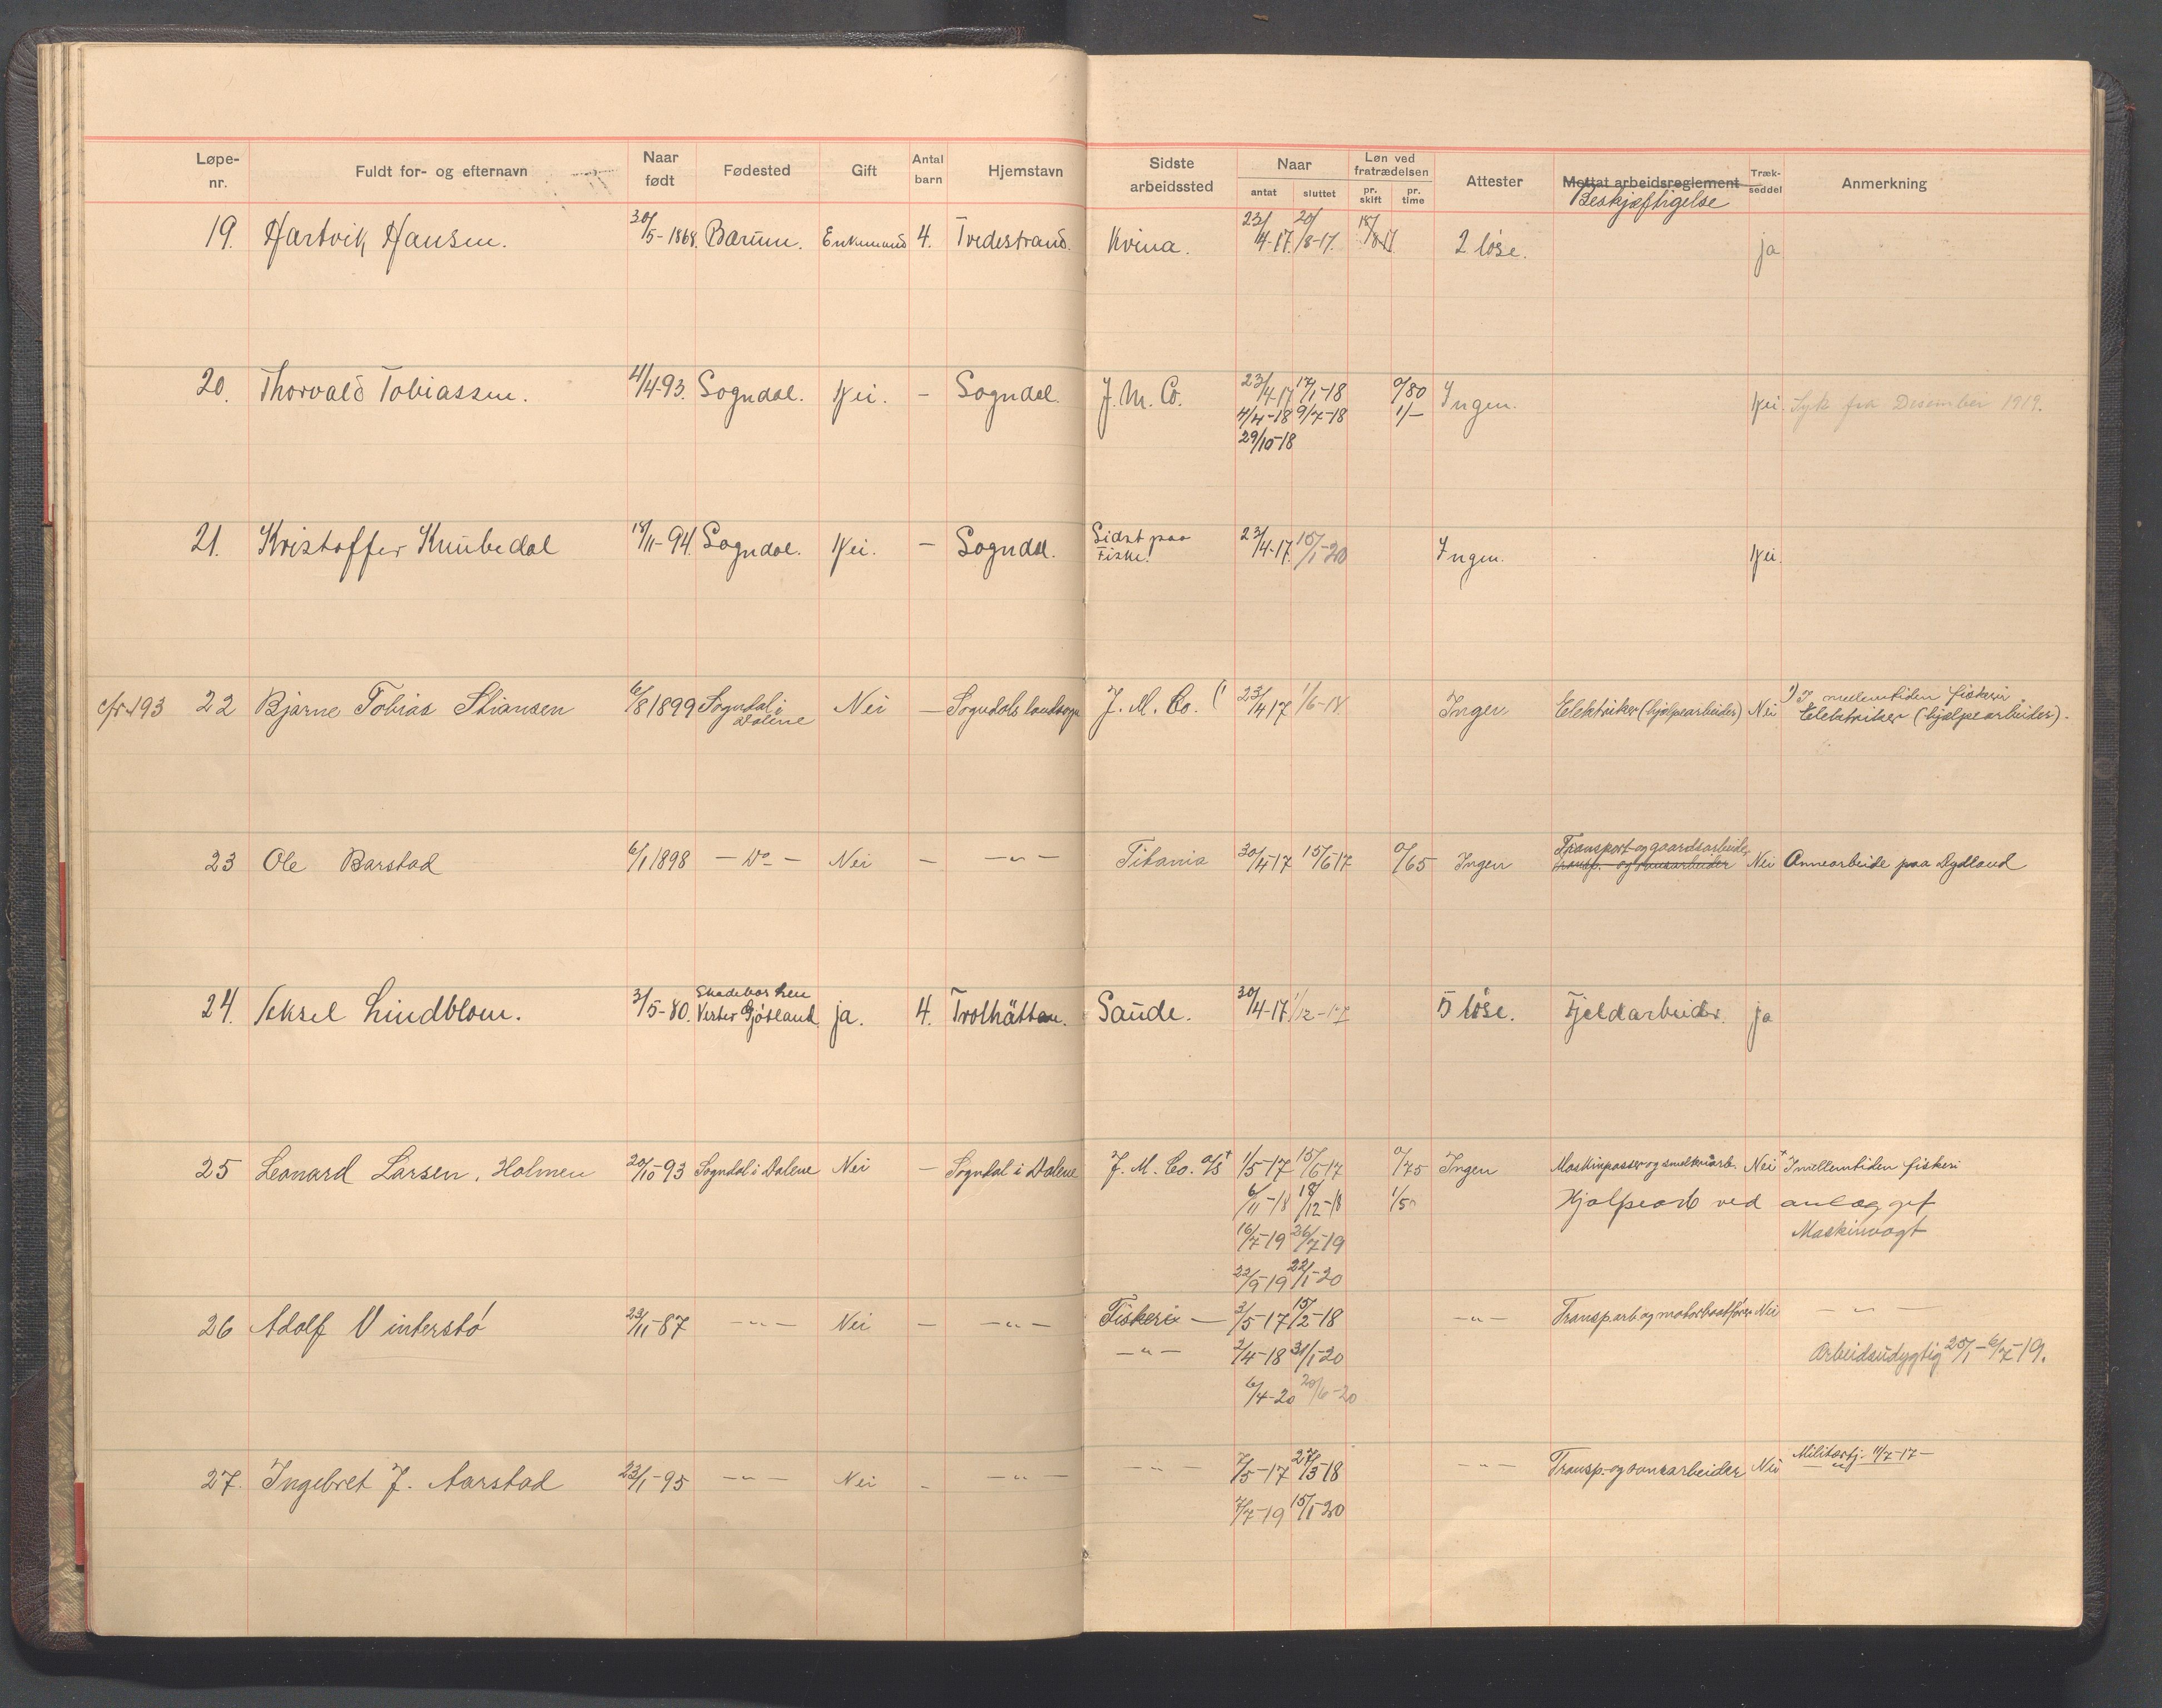 Løpe-nr. Fuldt for- og efternavn Naar født Fødested Gift Antal barn Hjemstavn Sidste arbeidssted Naar antat sluttet Løn ved fratrædelsen pr. skift pr. time Attester Mottat arbeidsreglement Beskjæftigelse Træk-seddel Anmerkning
19. Hartvik Hansen. 30/5-1868. Bærum. Enkemand 4. Tvedestrand. Kvina. 23/4-17. 20/8-17. 2 löse. ja
20. Thorvald Tobiassen. 4/4-93. Sogndal. Nei. - Sogndal. J. M. Co. 23/4-17 17/1-18 0/80 Ingen. Nei. Syk fra Desember 1919.
4/4-18 9/7-18 1/-
29/10-18
21. Kristoffer Knubedal 18/11-94. Sogndal. Nei. - Sogndal. Sidst paa Fiske. 23/4-17. 15/1-20 Ingen. Nei.
cfr 193 22 Bjarne Tobias Stiansen 6/8 1899 Sogndal i Dalene Nei - Sogndals landsogn J. M. Co. (1 23/4 17 1/6-18 Ingen Elektriker (hjælpearbeider) Nei 1) I mellemtiden fiskeri
Elektriker (hjælpearbeider).
23 Ole Barstad 6/1 1898 - Do - Nei - - " - Titania 30/4-17 15/6 17 0/65 Ingen Transport- og gaardsarbeider Nei Annearbeide paa Dydland
transp. og
24. Aksel Lindblom. 3/5-80. Vester Gjötland ja. 4. Trolhättan. Saude. 30/4-17 1/12-17 5 löse. Fjeldarbeider. ja
25 Leonard Larsen, Holmen 20/10-93 Sogndal i Dalene Nei - Sogndal i Dalene J. M. Co. A/S + 1/5-17 15/6 17 0/75 Ingen Maskinpasser og Nei + I mellemtiden fiskeri
6/11-18 18/12-18 1/50 Hjælpearb ved anlægget
16/7-19 26/7-19 Maskinvogt
22/9-19 22/1-20
26 Adolf Vinterstø 23/11-87 - " - Nei - - " - Fiskeri - 3/5-17 15/2-18 - " - Transp.arb og motorbaatfører Nei - " -
- " - 2/4-18 31/1-20 Arbeidsudygtig 25/1-6/7-19.
6/4-20 20/6-20
27. Ingebret J. Aarstad 23/1-95 - " - Nei - - " - - " - 7/5-17 27/3-18 - " - Transp.- og Nei Militærtj. 11/7-17-
- " -
7/7-19 15/1-20